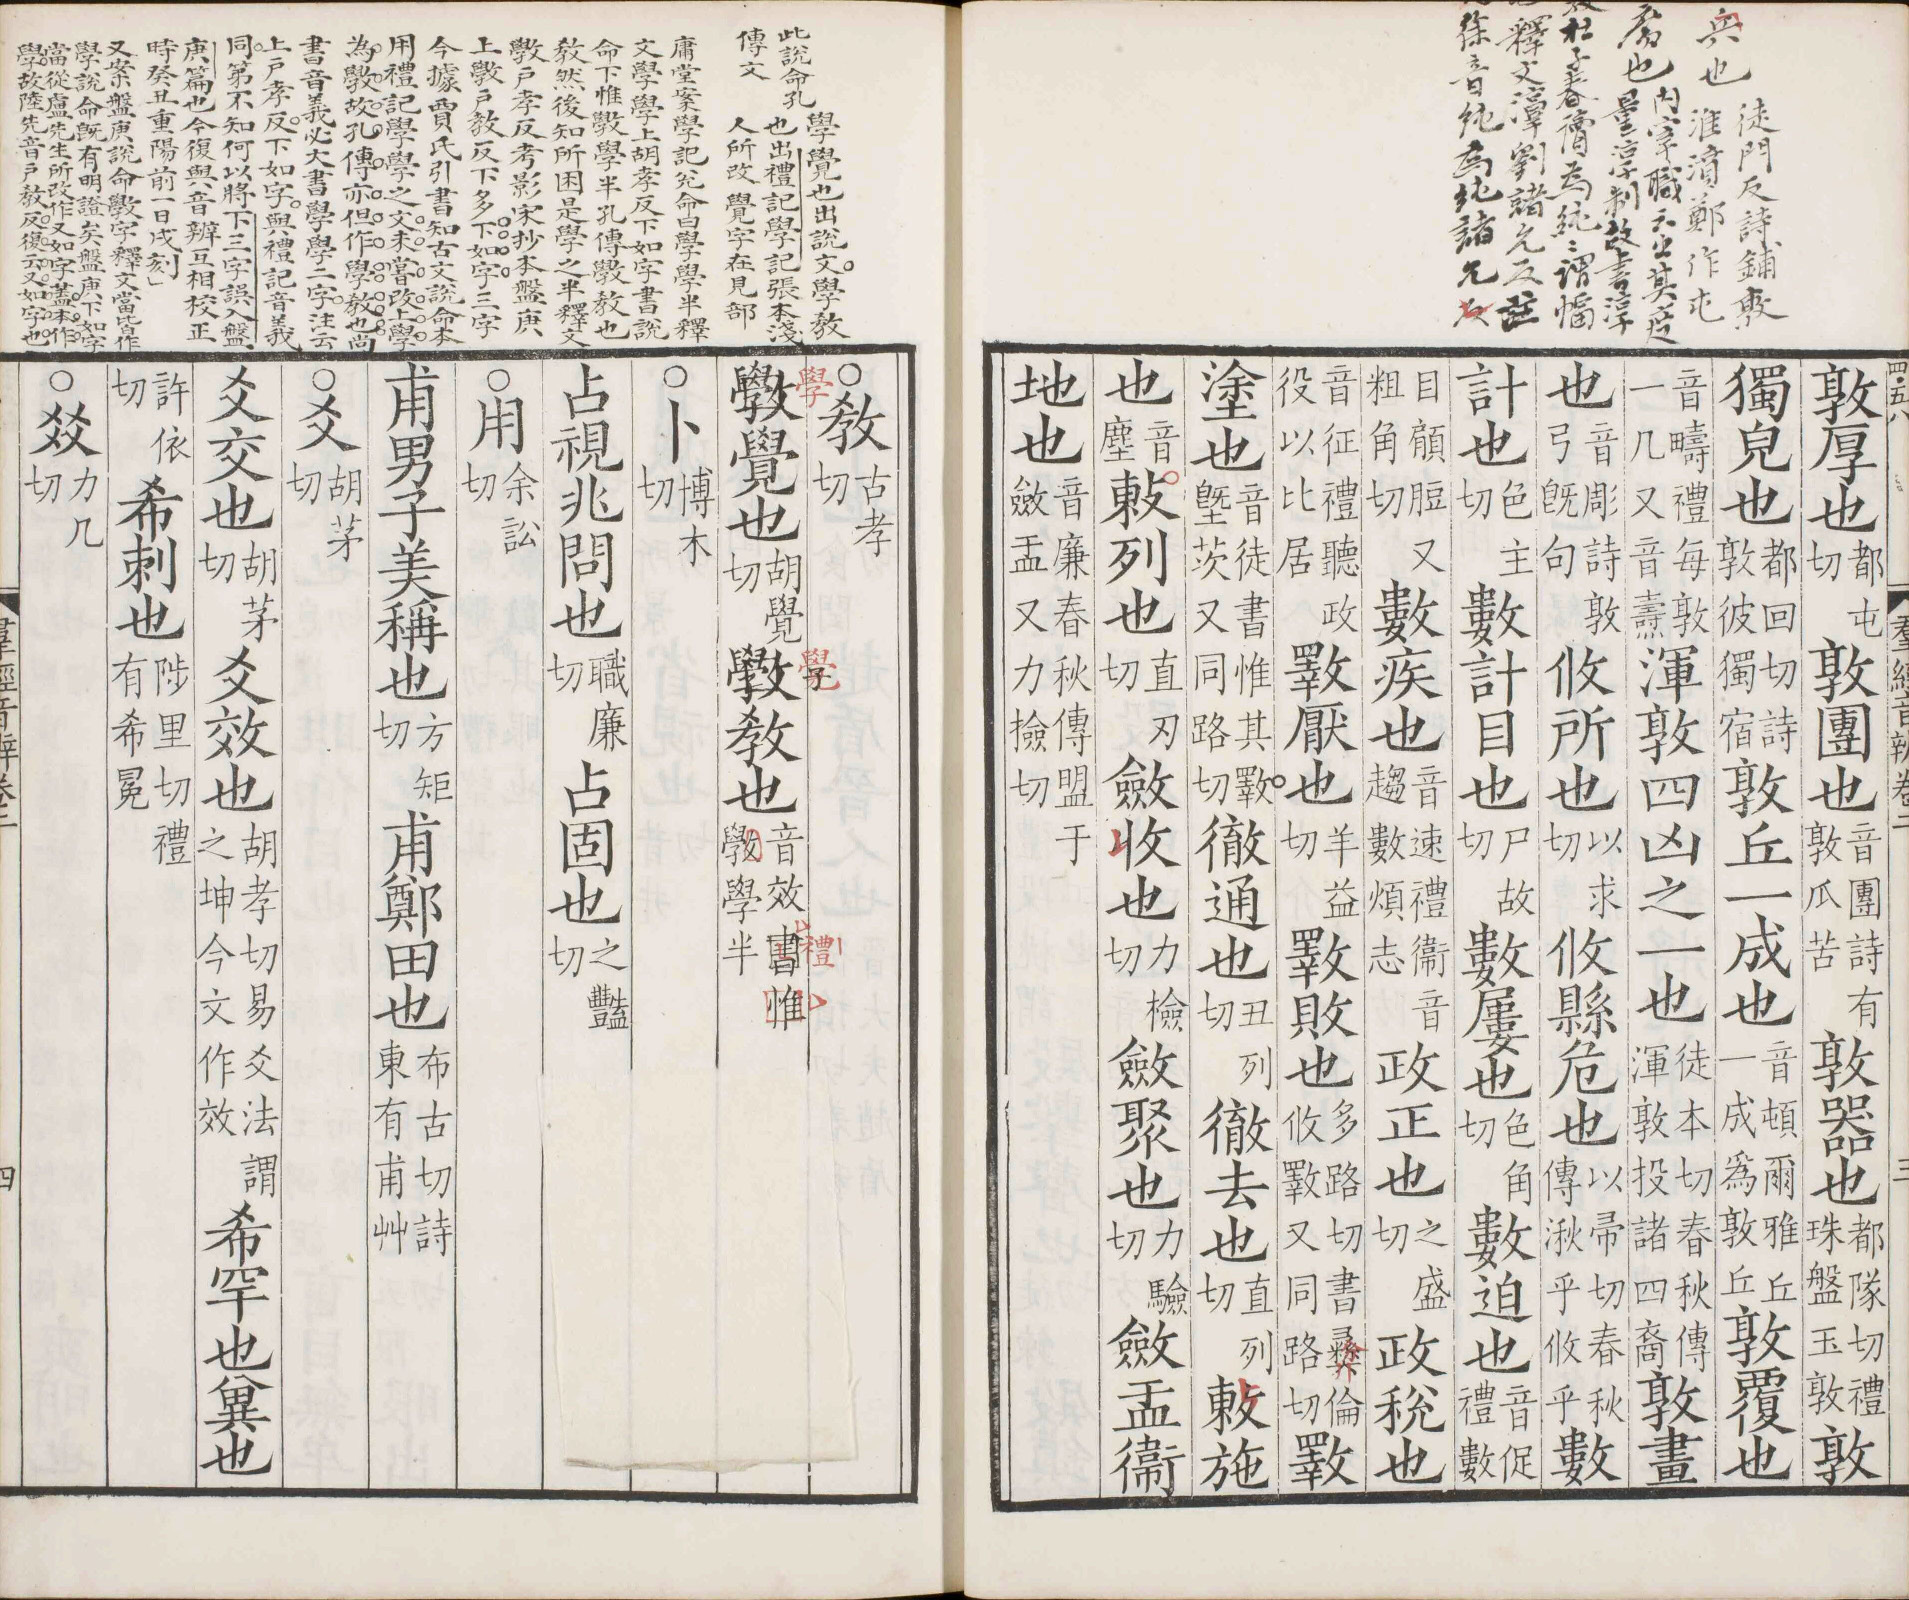 敦厚也都屯切敦團也音團詩有敦瓜苦敦器也都隊切禮珠盤玉敦敦
獨皃也都回切詩敦彼獨宿敦丘一成也音頓爾雅丘一成爲敦丘敦覆也
音疇禮每敦一几又音燾渾敦四凶之一也徒本切春秋傳渾敦投諸四裔敦畫
也音彫詩敦弓旣句攸所也以求切攸縣危也以帚切春秋傳湫乎攸乎數
計也色主切數計目也尸故切數屢也色角切數迫也音促禮數
目顧脰又粗角切數疾也音速禮衞音趨數煩志政正也之盛切政稅也
音征禮聽政役以比居斁厭也羊益切斁敗也多路切書彝倫攸斁又同路切斁
塗也音徒書惟其斁塈茨又同路切徹通也丑列切徹去也直列切敕施
也音塵敕列也直刃切斂收也力檢切斂聚也力驗切斂盂衞
地也音廉春秋傳盟于斂盂又力撿切
羣經音辨卷二
三
○教古孝切
斆覺也胡覺切斆教也音效書惟斆學半
○卜博木切
占視兆問也職廉切占固也之豔切
○用余訟切
甫男子美稱也方矩切甫鄭田也布古切詩東有甫艸
○爻胡茅切
爻交也胡茅切爻效也胡孝切易爻法之坤今文作效謂希罕也
許依切希刺也陟里切禮有希冕
○㸚力几切
羣經音辨卷二
四
徒門反詩鋪敦
淮濆鄭作屯
此說命孔傳文
學覺也出說文學教
也出禮記學記張本淺
人所改 覺字在見部
庸堂案學記兌命曰學學半釋
文學學上胡孝反下如字書說
命下惟斆學半孔傳斆教也
教然後知所困是學之半釋文
斆戶孝反考影宋抄本盤庚
上斆戶教反下多下如字三字
今據賈氏引書知古文說命本
用禮記學學之文未嘗改上學
為斆故孔傳亦但作學教也尚
書音義必大書學學二字注云
上戶孝反下如字與禮記音義
同第不知何以將下三字誤入盤
庚篇也今復與音辨互相校正
時癸丑重陽前一日戌刻
又案盤庚說命斆字釋文當皆作
學說命旣有明證矣盤庚下如字
當從盧先生所改作又如字蓋本作
學故陸先音戶教反復云又如字也